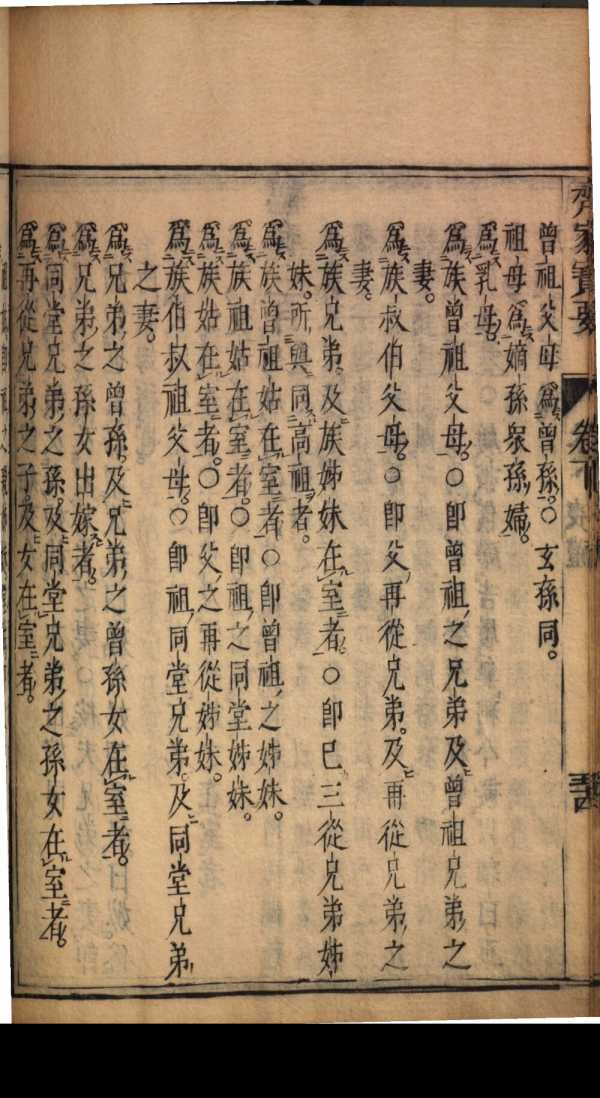 齊家寶要 卷下
曾祖父母爲曾孫○玄孫同。
祖母爲嫡孫衆孫婦。
爲乳母。
爲族曾祖父母○即曾祖之兄弟及曾祖兄弟之
妻。
爲族叔伯父母○即父再從兄弟及再從兄弟之
妻。
爲族兄弟及族姊妹在室者○即己三從兄弟姊
妹所與同高祖者。
爲族曾祖姑在室者○即曾祖之姊妹。
爲族祖姑在室者○即祖之同堂姊妹。
爲族姑在室者○即父之再從姊妹。
爲族伯叔祖父母○即祖同堂兄弟及同堂兄弟
之妻。
爲兄弟之曾孫及兄弟之曾孫女在室者。
爲兄弟之孫女出嫁者。
爲同堂兄弟之孫及同堂兄弟之孫女在室者。
爲再從兄弟之子及女在室者。